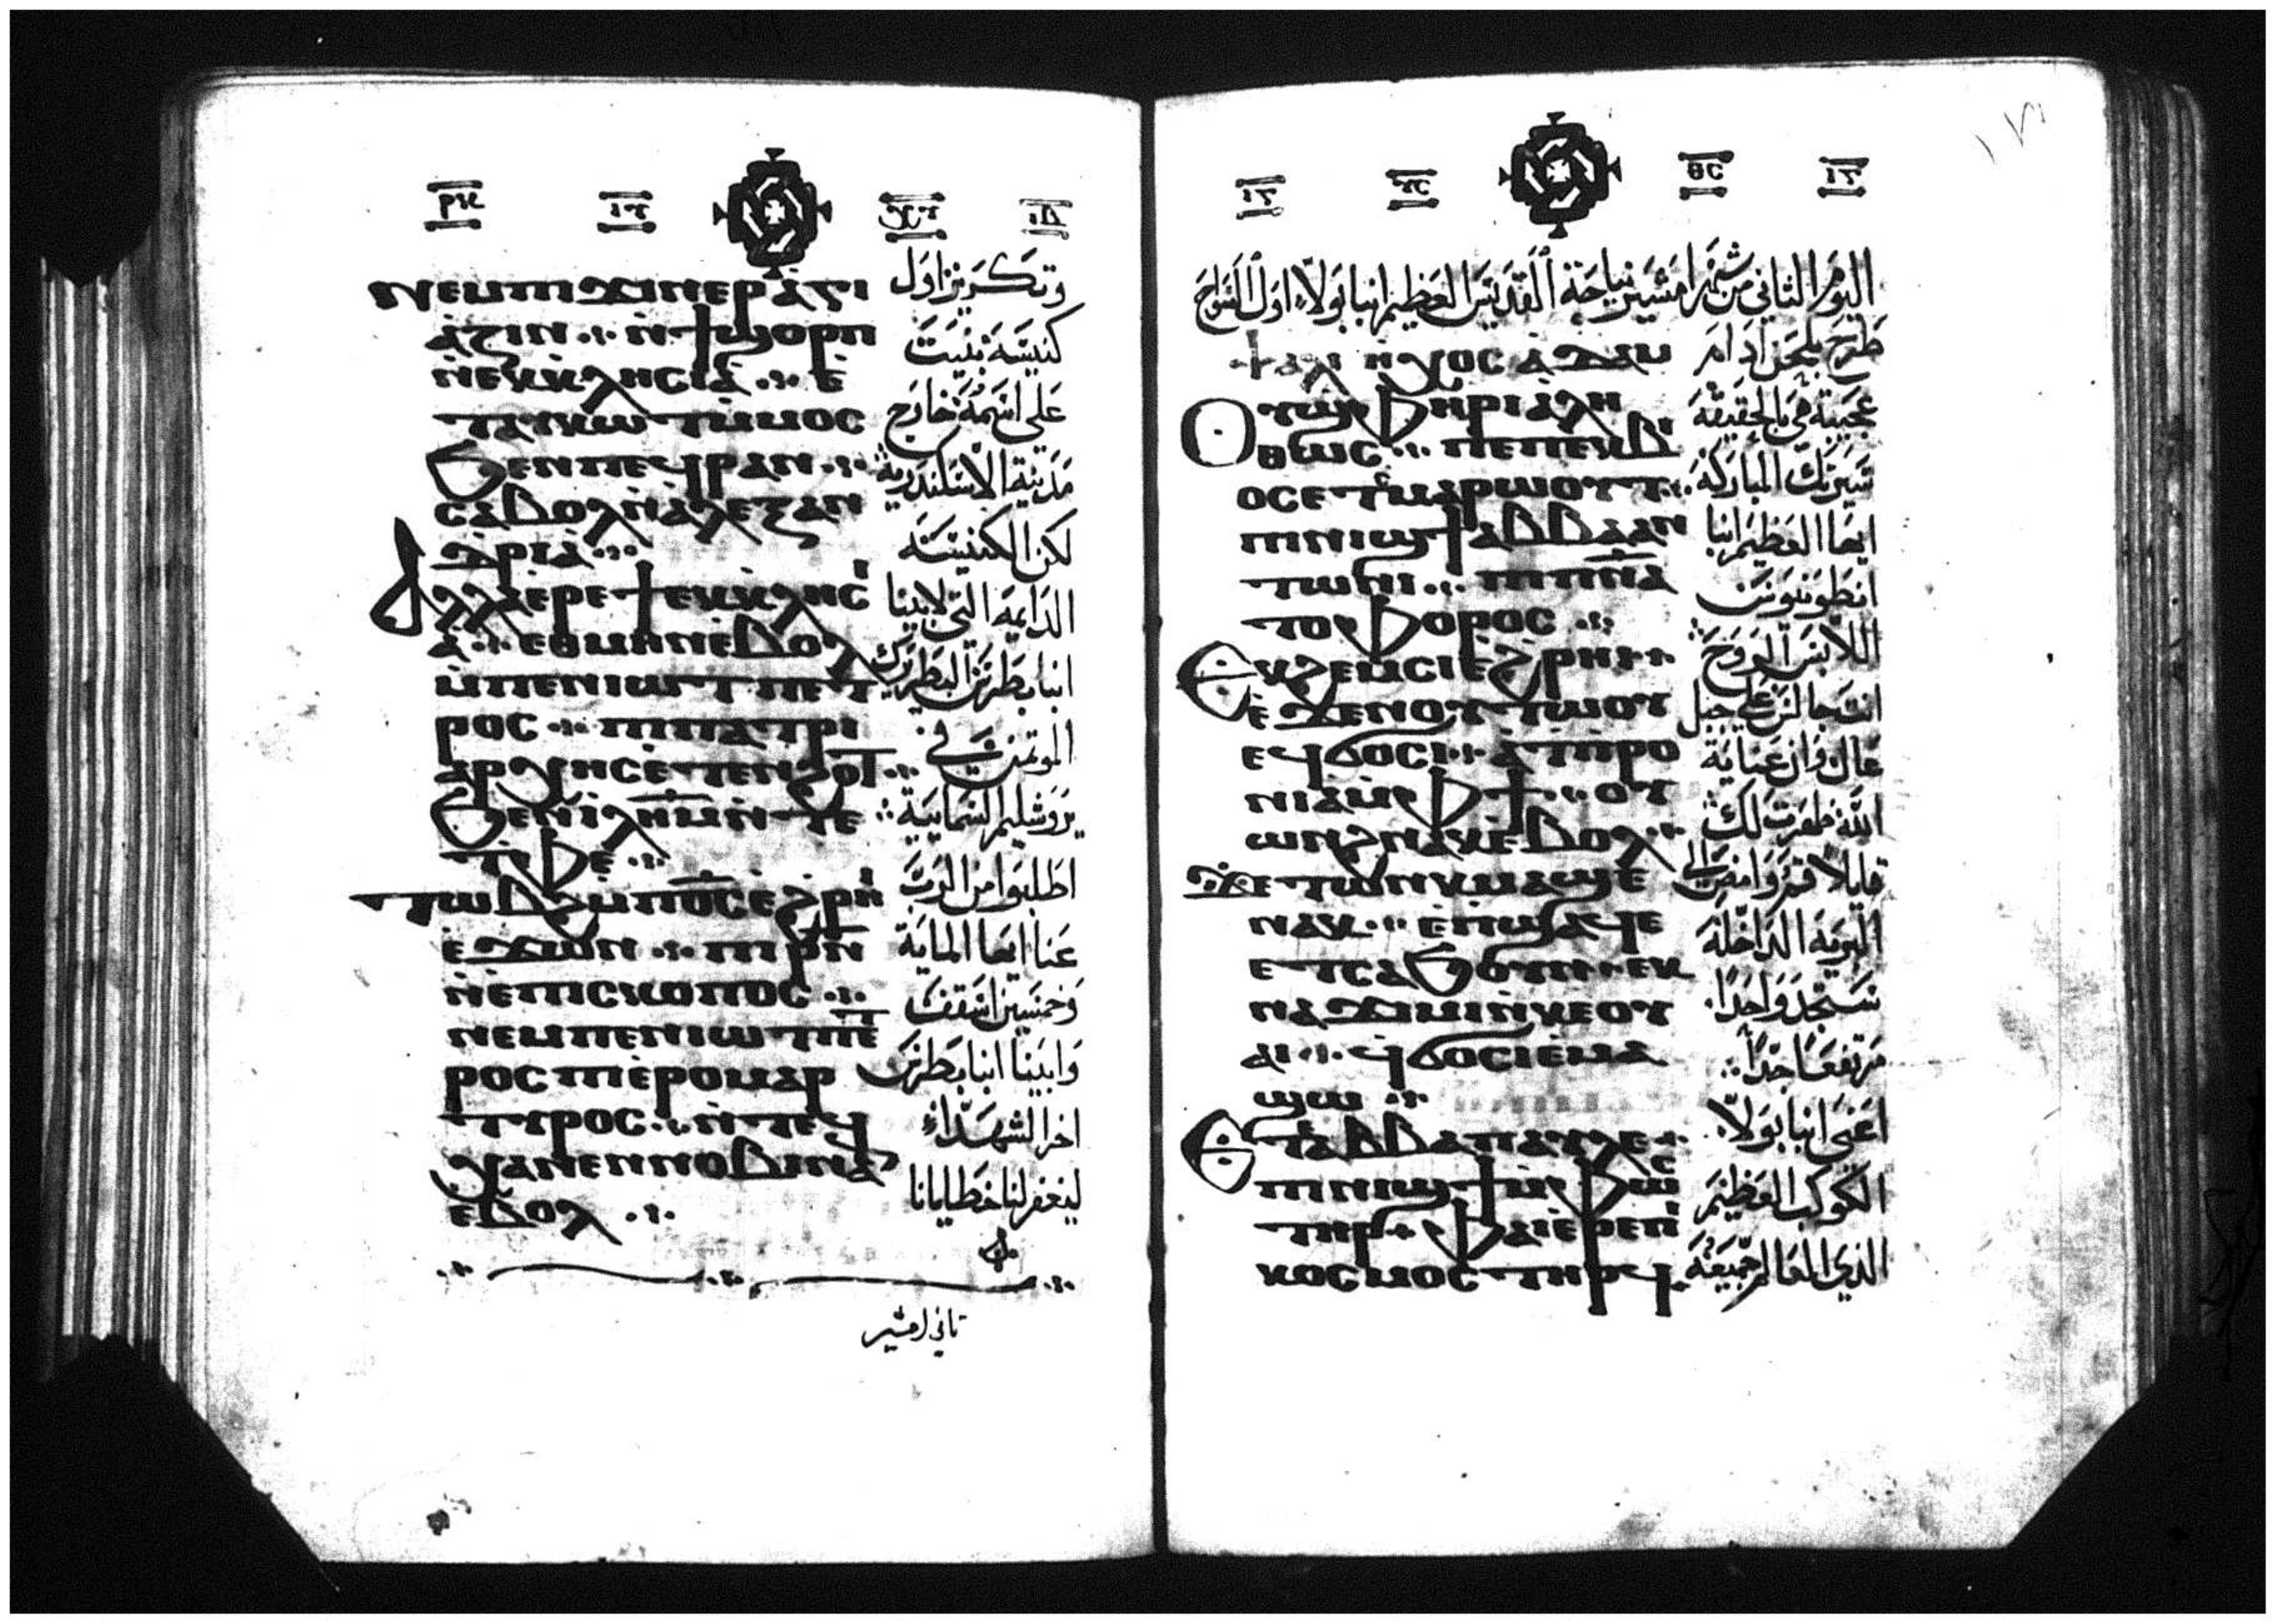 ⲛⲉⲙⲡⲓϫⲓⲛⲉⲣⲁⲅⲓ
ⲁⲍⲓⲛ ⲛϯϣⲟⲣⲡ
ⲛⲉⲕⲕⲗⲏⲥⲓⲁ ⲉ
ⲧⲁⲩⲕⲱⲧ ⲙⲙⲟⲥ
ϧⲉⲛⲡⲉϥⲣⲁⲛ
ⲥⲁⲃⲟⲗ ⲛⲁⲗⲉⲝⲁⲛ
ⲇⲣⲓⲁ
ⲁⲗⲗⲁ ⲉⲣⲉϯⲉⲕⲕⲗⲏⲥⲓ
ⲁ ⲉⲑⲙⲏⲛⲉⲃⲟⲗ
ⲙⲡⲉⲛⲓⲱⲧ ⲡⲉⲧ
ⲣⲟⲥ ⲡⲓⲡⲁⲧⲣⲓ
ⲁⲣⲭⲏⲥ ⲉⲧⲉⲛϩⲟⲧ
ϧⲉⲛⲓⲗⲏⲙ ⲛⲧⲉ
ⲧⲫⲉ
ⲧⲱⲃϩ ⲙⲡⲟⲥ ⲉϩⲣⲏⲓ
ⲉϫⲱⲛ ⲡⲓⲣⲛ
ⲛⲉⲡⲓⲥⲕⲟⲡⲟⲥ
ⲛⲉⲙⲡⲉⲛⲓⲱⲧ ⲡⲉⲧ
ⲣⲟⲥ ⲡⲓⲉⲣⲟⲙⲁⲣ
ⲧⲩⲣⲟⲥ ⲛⲧⲉϥ
ⲭⲁⲛⲉⲛⲛⲟⲃⲓⲛⲁⲛ
ⲉⲃⲟⲗ
وتكريز اول
كنيسة بنيت
على اسمه خارج
مدينة الاسكندرية
لكن الكنيسة
الدايمة التي لابينا
انبا بطرس البطريرك
الموتمن في
يروشليم السمايية
اطلبوا من الرب
عنا ايها الماية
وخمسين اسقف
وابينا انبا بطرس
اخر الشهداء
ليغفر لنا خطايانا
تاني امشير
اليوم الثاني من شهر امشير نياحة القديس العظيم انبا بولا اول السواح
ⲯⲁⲗⲓ ⲏⲭⲟⲥ ⲁⲇⲁⲙ
ⲟⲩϣⲫⲏⲣⲓ ⲁⲗⲏ
ⲑⲱⲥ ⲡⲉ ⲡⲉⲕⲃⲓ
ⲟⲥ ⲉⲧⲥⲙⲁⲣⲱⲟⲩⲧ
ⲡⲓⲛⲓϣϯ ⲁⲃⲃⲁ ⲁⲛ
ⲧⲱⲛⲓ ⲡⲓⲡⲛⲁ
ⲧⲟⲫⲟⲣⲟⲥ
ⲉⲕϩⲉⲙⲥⲓ ⲉϩⲣⲏⲓ
ⲉϫⲉⲛⲟⲩⲧⲱⲟⲩ
ⲉϥϭⲟⲥⲓ ⲁⲡⲓⲣⲟ
ⲛⲓⲁ ⲙⲫϯ ⲟⲩ
ⲱⲛϩ ⲛⲁⲕ ⲉⲃⲟⲗ
ϫⲉ ⲧⲱⲛⲕ ⲙⲁϣⲉ
ⲛⲁⲕ ⲉⲡϣⲁϥⲉ
ⲉⲧⲥⲁϧⲟⲩⲛ ⲉⲕ
ⲛⲁϫⲓⲙⲓ ⲛⲕⲉⲟⲩ
ⲁⲓ ϥϭⲟⲥⲓ ⲉⲙⲁ
ϣⲱ
ⲉⲧⲉ ⲁⲃⲃⲁ ⲡⲁⲩⲗⲉ
ⲡⲓⲛⲓϣϯ ⲙⲫⲱⲥ
ⲧⲏⲣ ⲫⲁⲓ ⲉⲣⲉⲡⲓ
ⲕⲟⲥⲙⲟⲥ ⲧⲏⲣϥ
طرح بلحن ادام
عجيبة هي بالحقيقة
سيرتك المباركة
ايها العظيم انبا
انطونيوس
اللابس الروح
انت جالس على جبل
عال وان عناية
الله ظهرت لك
قايلا قم وامض الى
البرية الداخلة
ستجد واحدا
مرتفعا جدا
اعني انبا بولا
الكوكب العظيم
الذي العالم جميعه